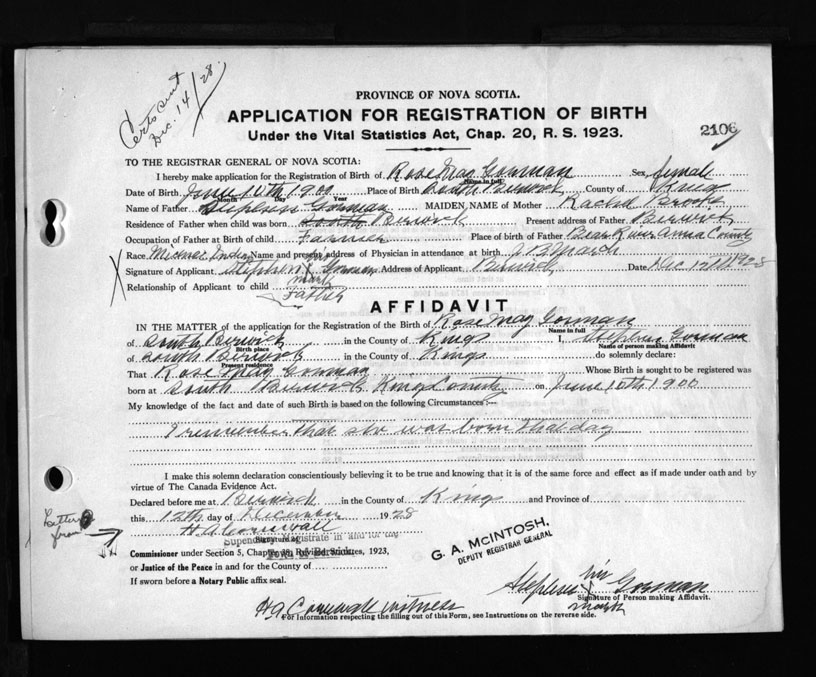 Certs sent
Dec. 14/28.
PROVINCE OF NOVA SCOTIA.
APPLICATION FOR REGISTRATION OF BIRTH
Under the Vital Statistics Act, Chap. 20, R. S. 1923.
2106
TO THE REGISTRAR GENERAL OF NOVA SCOTIA:
I hereby make application for the Registration of Birth of Rose May Gorman Sex, female
Name in full
Date of Birth June 10th 1900 Place of Birth South Berwick County of Kings
Month Day Year
Name of Father Stephen Gorman MAIDEN NAME of Mother Rachel Brooks
Residence of Father when child was born South Berwick Present address of Father Berwick
Occupation of Father at Birth of child Farmer Place of birth of Father Bear River Anna County
Race Micmac Indian Name and present address of Physician in attendance at birth J B March
Signature of Applicant Stephen X Gorman Address of Applicant Berwick Date Dec 12th 1928
mark
Relationship of Applicant to child Father
AFFIDAVIT
IN THE MATTER of the application for the Registration of the Birth of Rose May Gorman
Name in full
of South Berwick in the County of Kings I, Stephen Gorman
Birth place Name of person making Affidavit
of South Berwick in the County of Kings do solemnly declare:
Present residence
That Rose May Gorman Whose Birth is sought to be registered was
born at South Berwick Kings County on June 10th 1900
My knowledge of the fact and date of such Birth is based on the following Circumstances:—
I remember that she was born that day
I make this solemn declaration conscientiously believing it to be true and knowing that it is of the same force and effect as if made under oath and by
virtue of The Canada Evidence Act.
Declared before me at Berwick in the County of Kings and Province of
this 12th day of December 1928
Letter from
H A Cornwall
Stipendiary Magistrate in and for the
Town of Berwick
Commissioner under Section 5, Chapter 38, Revised Statutes, 1923,
or Justice of the Peace in and for County of
If sworn before a Notary Public affix seal.
G. A. McINTOSH,
DEPUTY REGISTRAR GENERAL
Stephen X his Gorman
mark
Signature of Person making Affidavit.
H A Cornwall witness
For Information respecting the filling out of this Form, see Instructions on the reverse side.